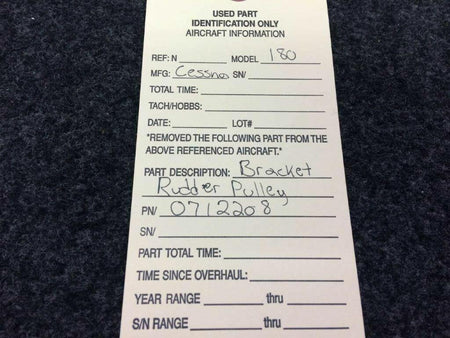 USED PART
IDENTIFICATION ONLY
AIRCRAFT INFORMATION
REF: N ________ MODEL 180
MFG: Cessna SN/ ________
TOTAL TIME: ________
TACH/HOBBS: ________
DATE: ________ LOT# ________
*REMOVED THE FOLLOWING PART FROM THE
ABOVE REFERENCED AIRCRAFT.*
PART DESCRIPTION: Bracket
Rudder Pulley
PN/ 0712208
SN/ ________
PART TOTAL TIME: ________
TIME SINCE OVERHAUL: ________
YEAR RANGE ________ thru ________
S/N RANGE ________ thru ________